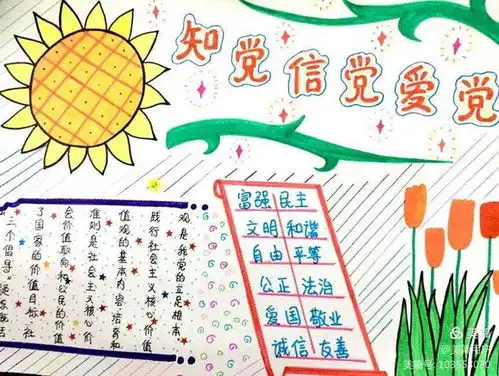 知党信党爱党
"三个倡导"凝练概括
了国家的价值目标、社
会价值取向和公民的价值
准则是社会主义核心价
值观的基本内容培养和
践行社会主义核心价值
观是我党的立足根本
富强 民主
文明 和谐
自由 平等
公正 法治
爱国 敬业
诚信 友善
美篇号: